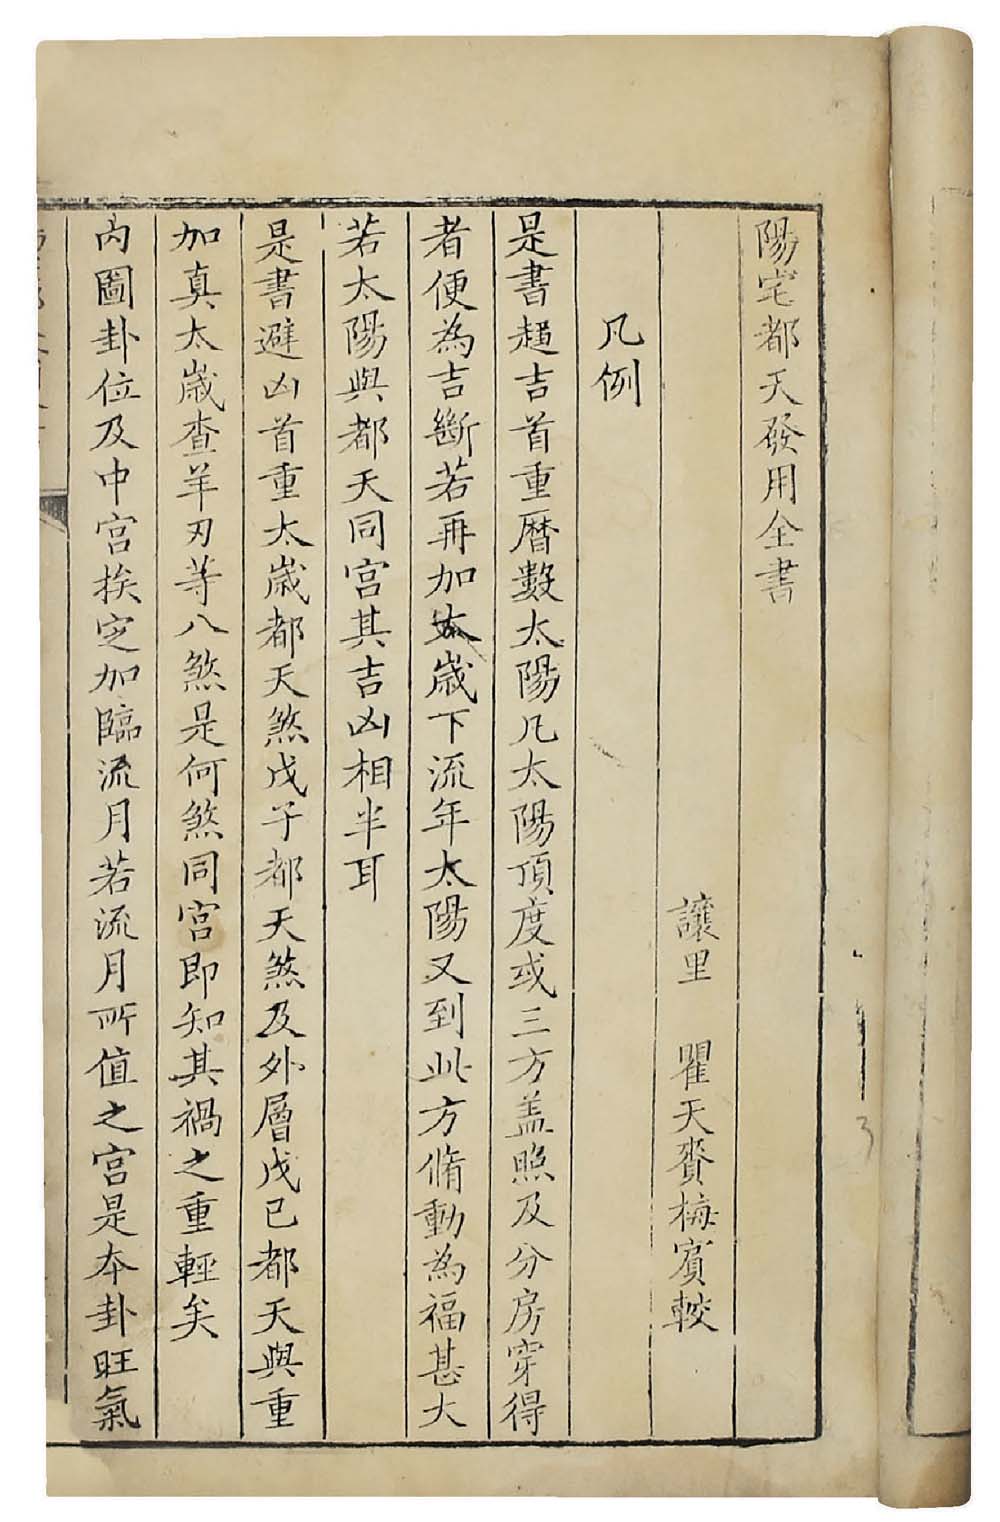 陽宅都天發用全書
讓里　瞿天賚梅賓較
凡例
是書趨吉首重曆數太陽凡太陽頂度或三方盖照及分房穿得
者便為吉斷若再加太歲下流年太陽又到此方脩動為福甚大
若太陽與都天同宮其吉凶相半耳
是書避凶首重太歲都天煞戊子都天煞及外層戊己都天與重
加真太歲查羊刃等八煞是何煞同宮即知其禍之重輕矣
內圖卦位及中宮挨定加臨流月若流月所值之宮是本卦旺氣